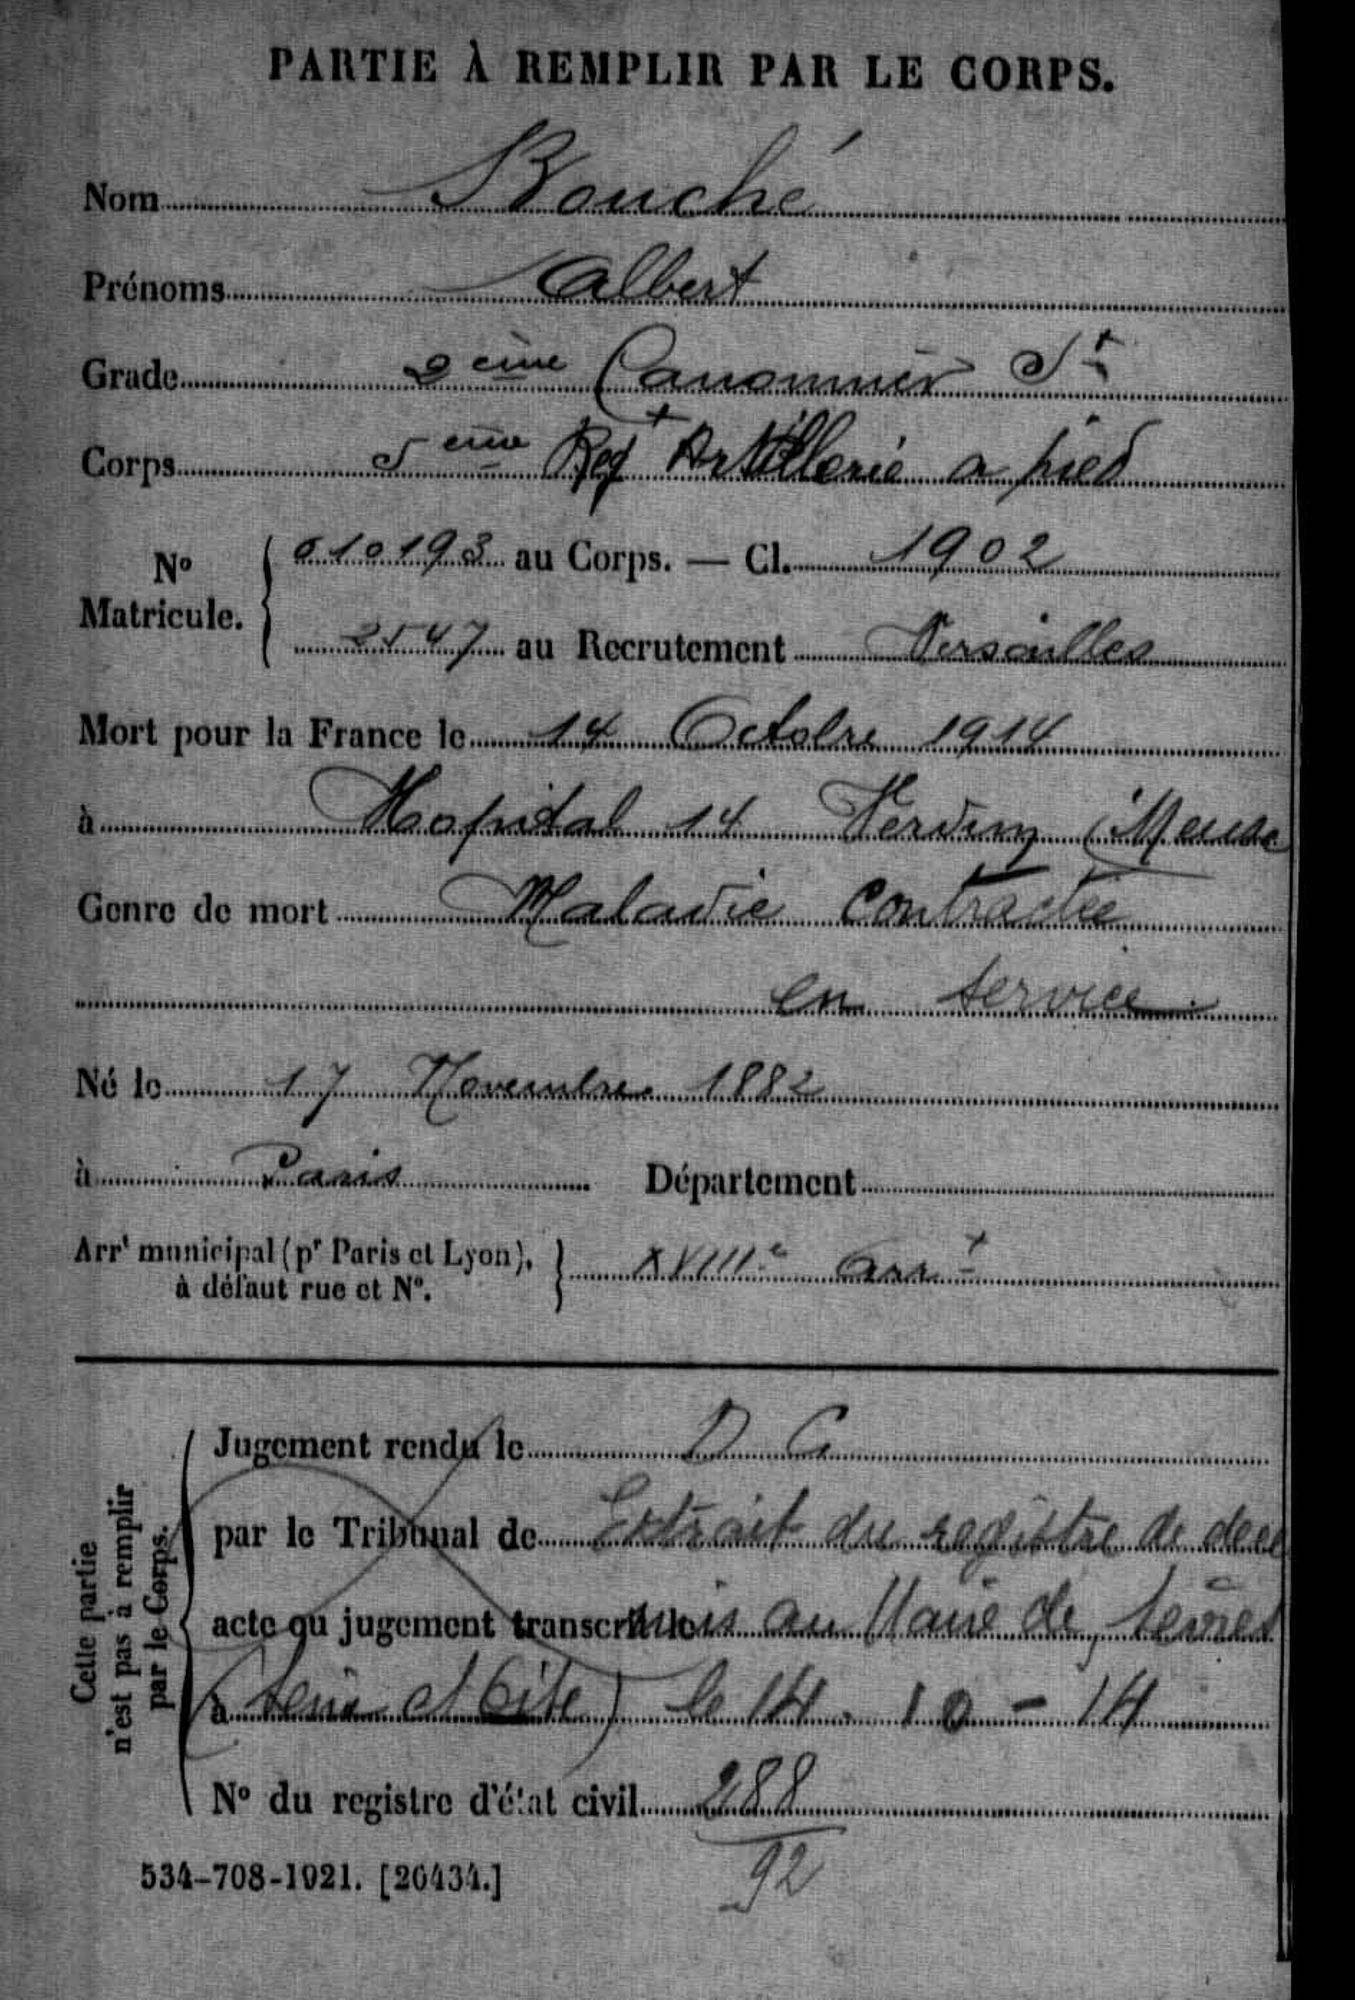 PARTIE À REMPLIR PAR LE CORPS.
Nom Bouché
Prénoms Albert
Grade 2ème Canonnier St
Corps 5ème Regt Artillerie a pied
No Matricule. 010193 au Corps. — Cl. 1902
2547 au Recrutement Versailles
Mort pour la France le 14 Octobre 1914
à Hopital 14 Verdun (Meuse
Genre de mort Maladie Contractée
en service
Né le 17 Novembre 1882
à Paris Département
Arrt municipal (pr Paris et Lyon), à défaut rue et No. XVIIIe Arrt
Cette partie n'est pas à remplir par le Corps.
Jugement rendu le D C
par le Tribunal de Extrait du registre de décè
acte ou jugement transcrit le mis au Maire de Sèvres
à (Seine et Oise) le 14. 10 - 14
No du registre d'état civil 288
92
534-708-1921. [26434.]